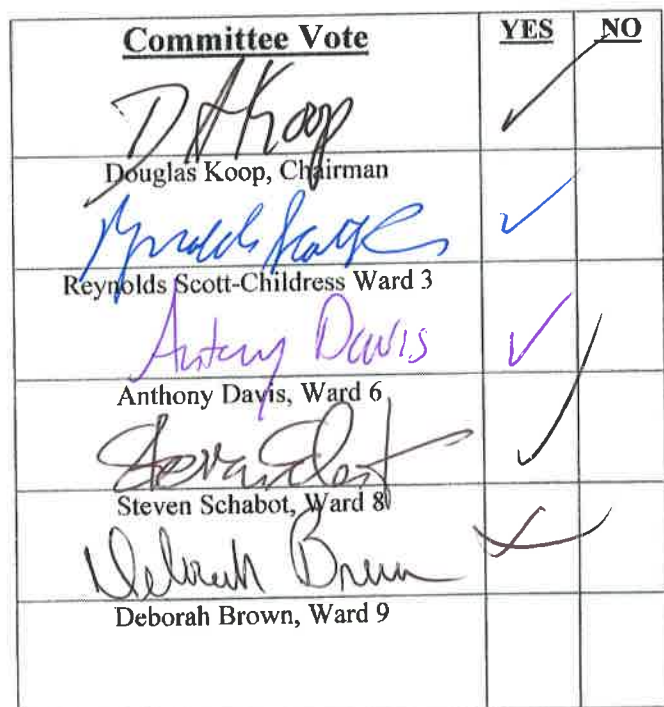 Committee Vote YES NO
D A Koop
Douglas Koop, Chairman
Reynolds Scott-Childress Ward 3
Antony Davis
Anthony Davis, Ward 6
Steven Schabot, Ward 8
Deborah Brown
Deborah Brown, Ward 9